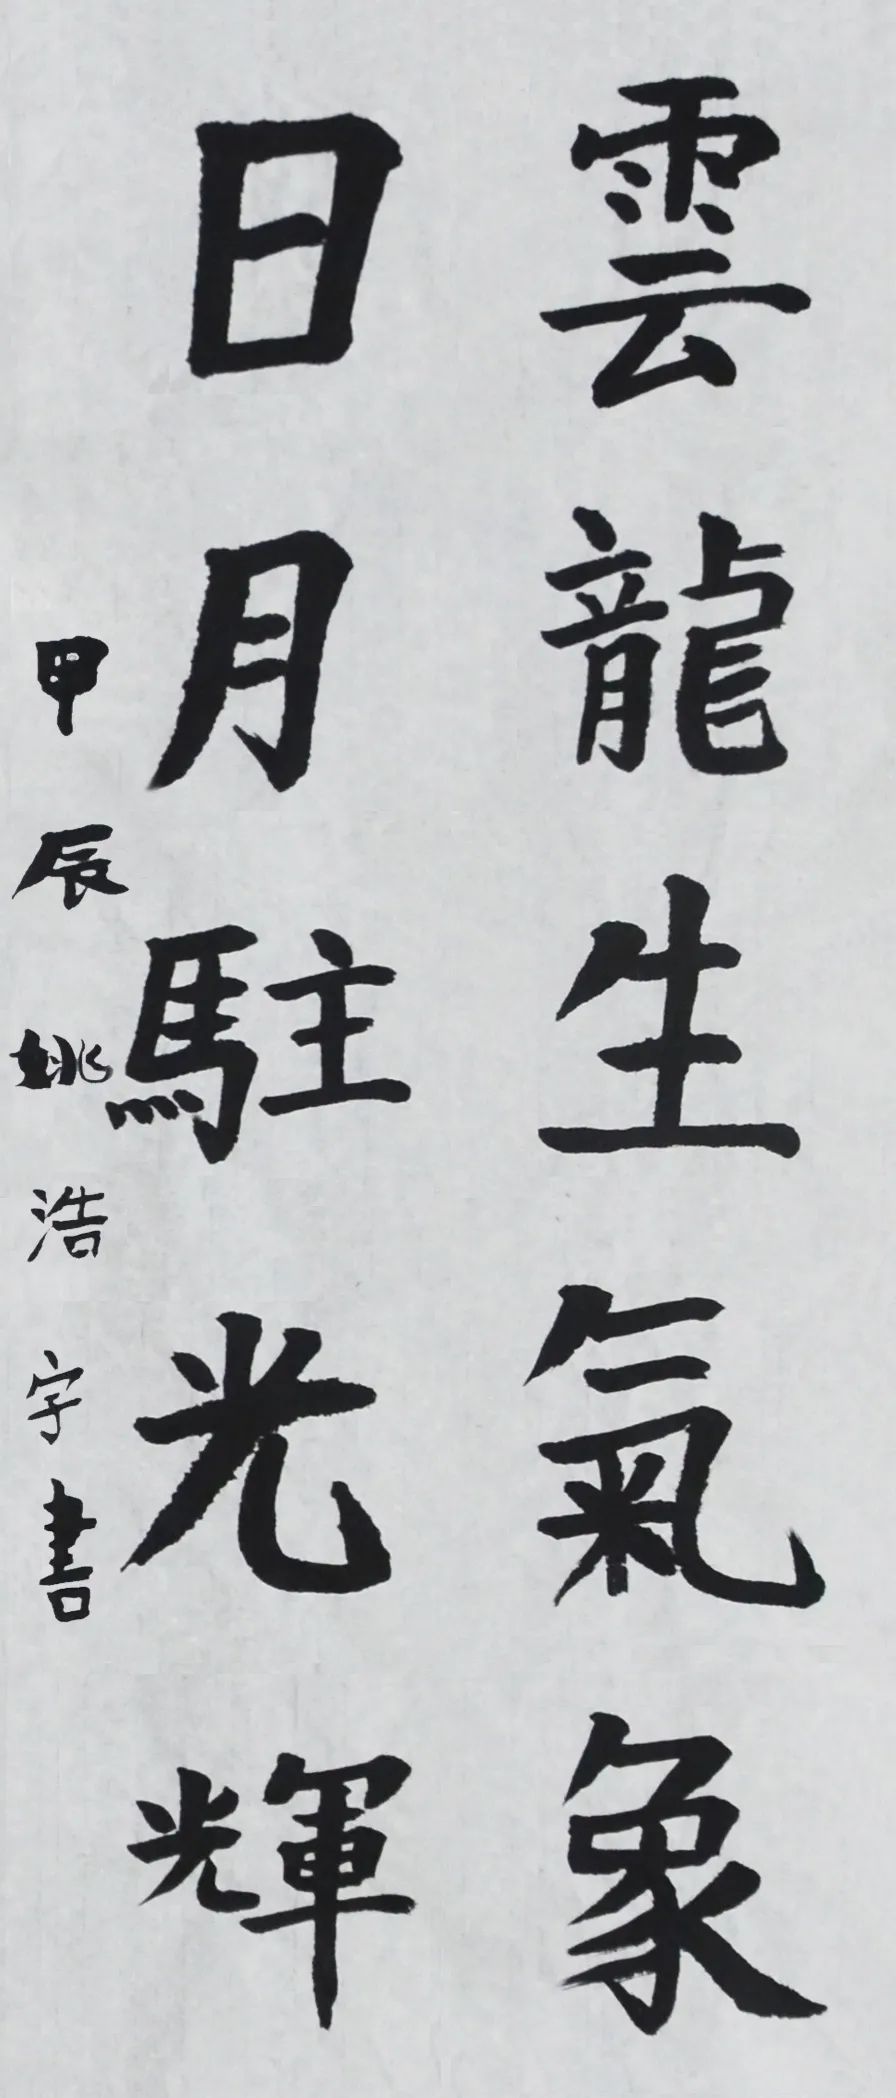 雲龍生氣象
日月駐光輝
甲辰姚浩宇書